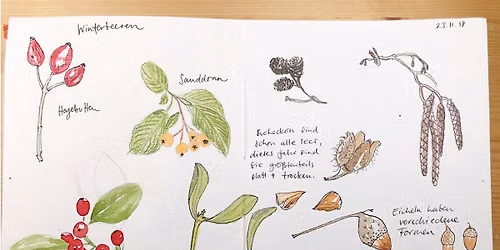 Winterbeeren
23.11.18
Sanddorn
Hagebutten
Bucheckern sind
schon alle leer,
dieses Jahr sind
sie größtenteils
platt + trocken.
Eicheln haben
verschiedene
Formen